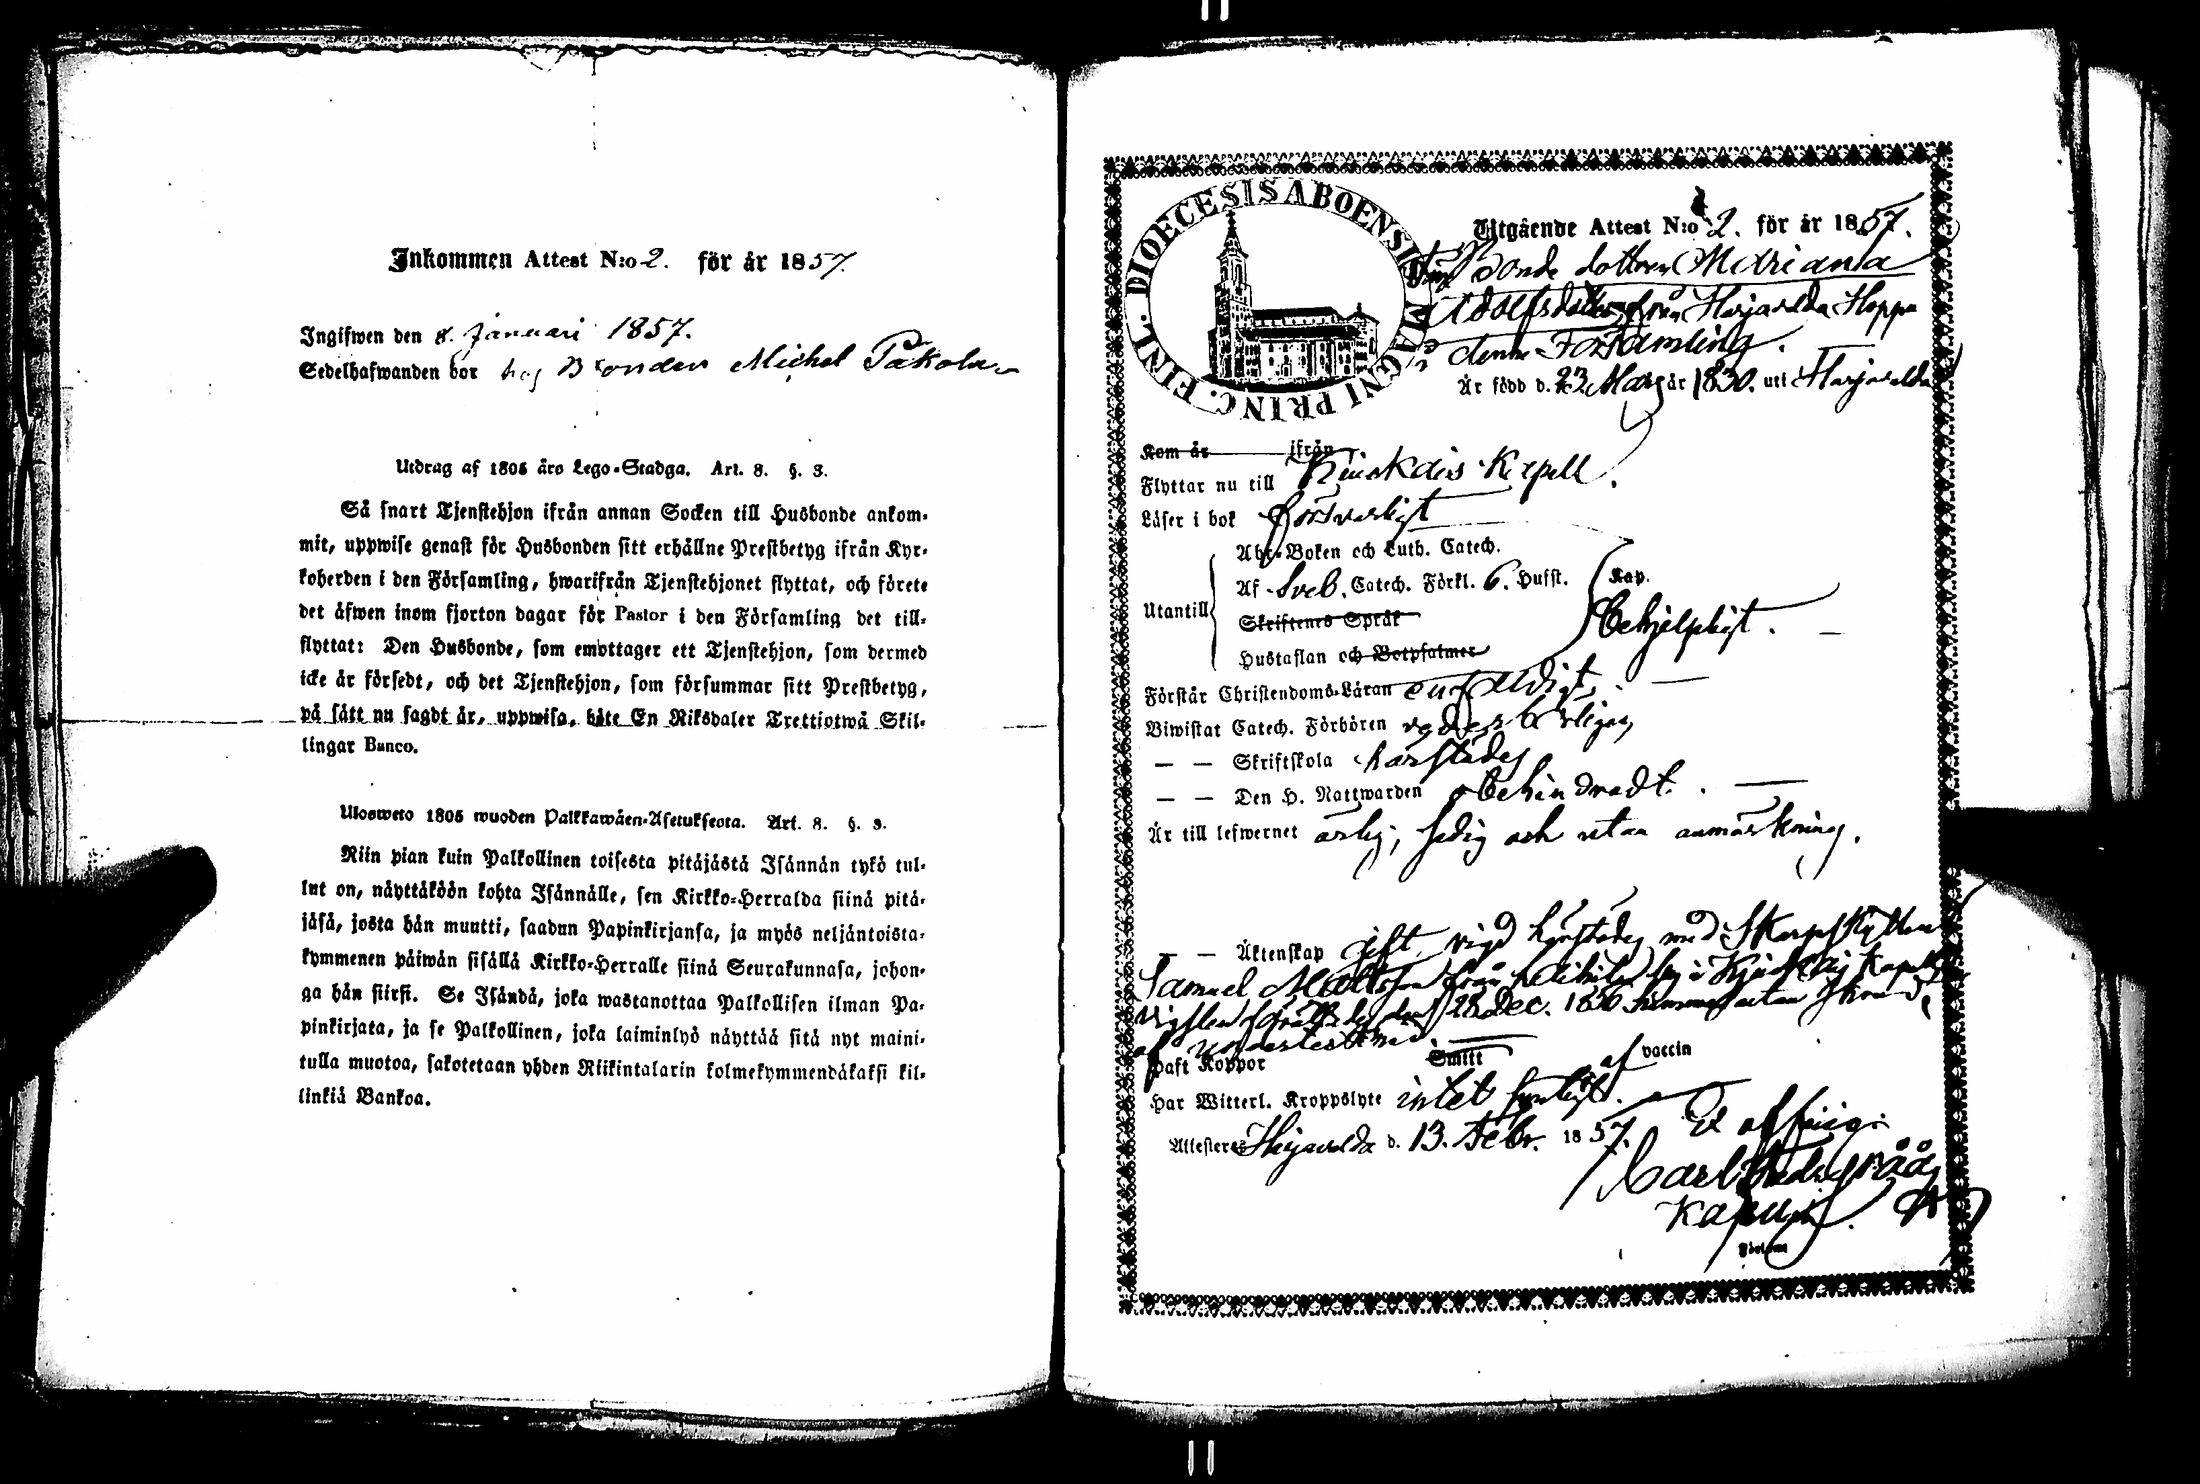 Inkommen Attest N:o 2. för år 1857.
Ingifwen den 8. Januari 1857.
Sedelhafwanden bor hos Bonden Michel Pakola
Utdrag af 1805 års Lego-Stadga. Art. 8. §. 3.
Så snart Tjenstehjon ifrån annan Socken till Husbonde ankom-
mit, uppwise genast för Husbonden sitt erhållne Prestbetyg ifrån Kyr-
koherden i den Församling, hwarifrån Tjenstehjonet flyttat, och förete
det äfwen inom fjorton dagar för Pastor i den Församling det till-
flyttat: Den Husbonde, som emottager ett Tjenstehjon, som dermed
icke är försedt, och det Tjenstehjon, som försummar sitt Prestbetyg,
på sätt nu sagdt är, uppwisa, böte En Riksdaler Trettiotwå Skil-
lingar Banco.
Ulosweto 1805 wuoden Palkkawäen-Asetuksesta. Art. 8. §. 3.
Niin pian kuin Palkollinen toisesta pitäjästä Isännän tykö tul-
lut on, näyttäköön kohta Isännälle, sen Kirkko-Herralda siinä pitä-
jäsä, josta hän muutti, saadun Papinkirjansa, ja myös neljäntoista-
kymmenen päiwän sisällä Kirkko-Herralle siinä Seurakunnasa, johon-
ga hän siirsi. Se Isändä, joka wastanottaa Palkollisen ilman Pa-
pinkirjata, ja se Palkollinen, joka laiminlyö näyttää sitä nyt maini-
tulla muotoa, sakotetaan yhden Riikintalarin kolmekymmendäkaksi kil-
linkiä Bankoa.
DIOECESIS ABOENSIS MAGNI PRINC. FINL.
Utgående Attest N:o 2. för år 1857.
Bonde dottren Mariana
Adolfsdotter från Harjavalda Hoppa
i denna Församling.
Är född d. 23 Mars år 1830. uti Harjavalda
Kom år ifrån
Flyttar nu till Kiukais Kapell.
Läser i bok försvarligt
Abc-Boken och Luth. Catech.
Af Sveb. Catech. Förkl. 6. Hufst. Kap.
Utantill
Skriftenes Språk behjelpligt.
Hustaflan och Botpsalmer
Förstår Christendoms-Läran enfaldigt.
Biwistat Catech. Förhören
— — Skriftskola härstädes
— — Den H. Nattwarden obehindradt.
Är till lefwernet ärlig, sedig och utan anmärkning.
— — Äktenskap gift, vigd härstädes med Skarpskytten
Samuel Mattsson från i Kapell
28 Dec. 1856
af undertecknad
Haft Koppor Smitt af vaccin
Har Witterl. Kroppslyte intet synligt.
Attesteras Harjavalda d. 13. Febr. 1857.
Ex officio:
Carl
Kapellan